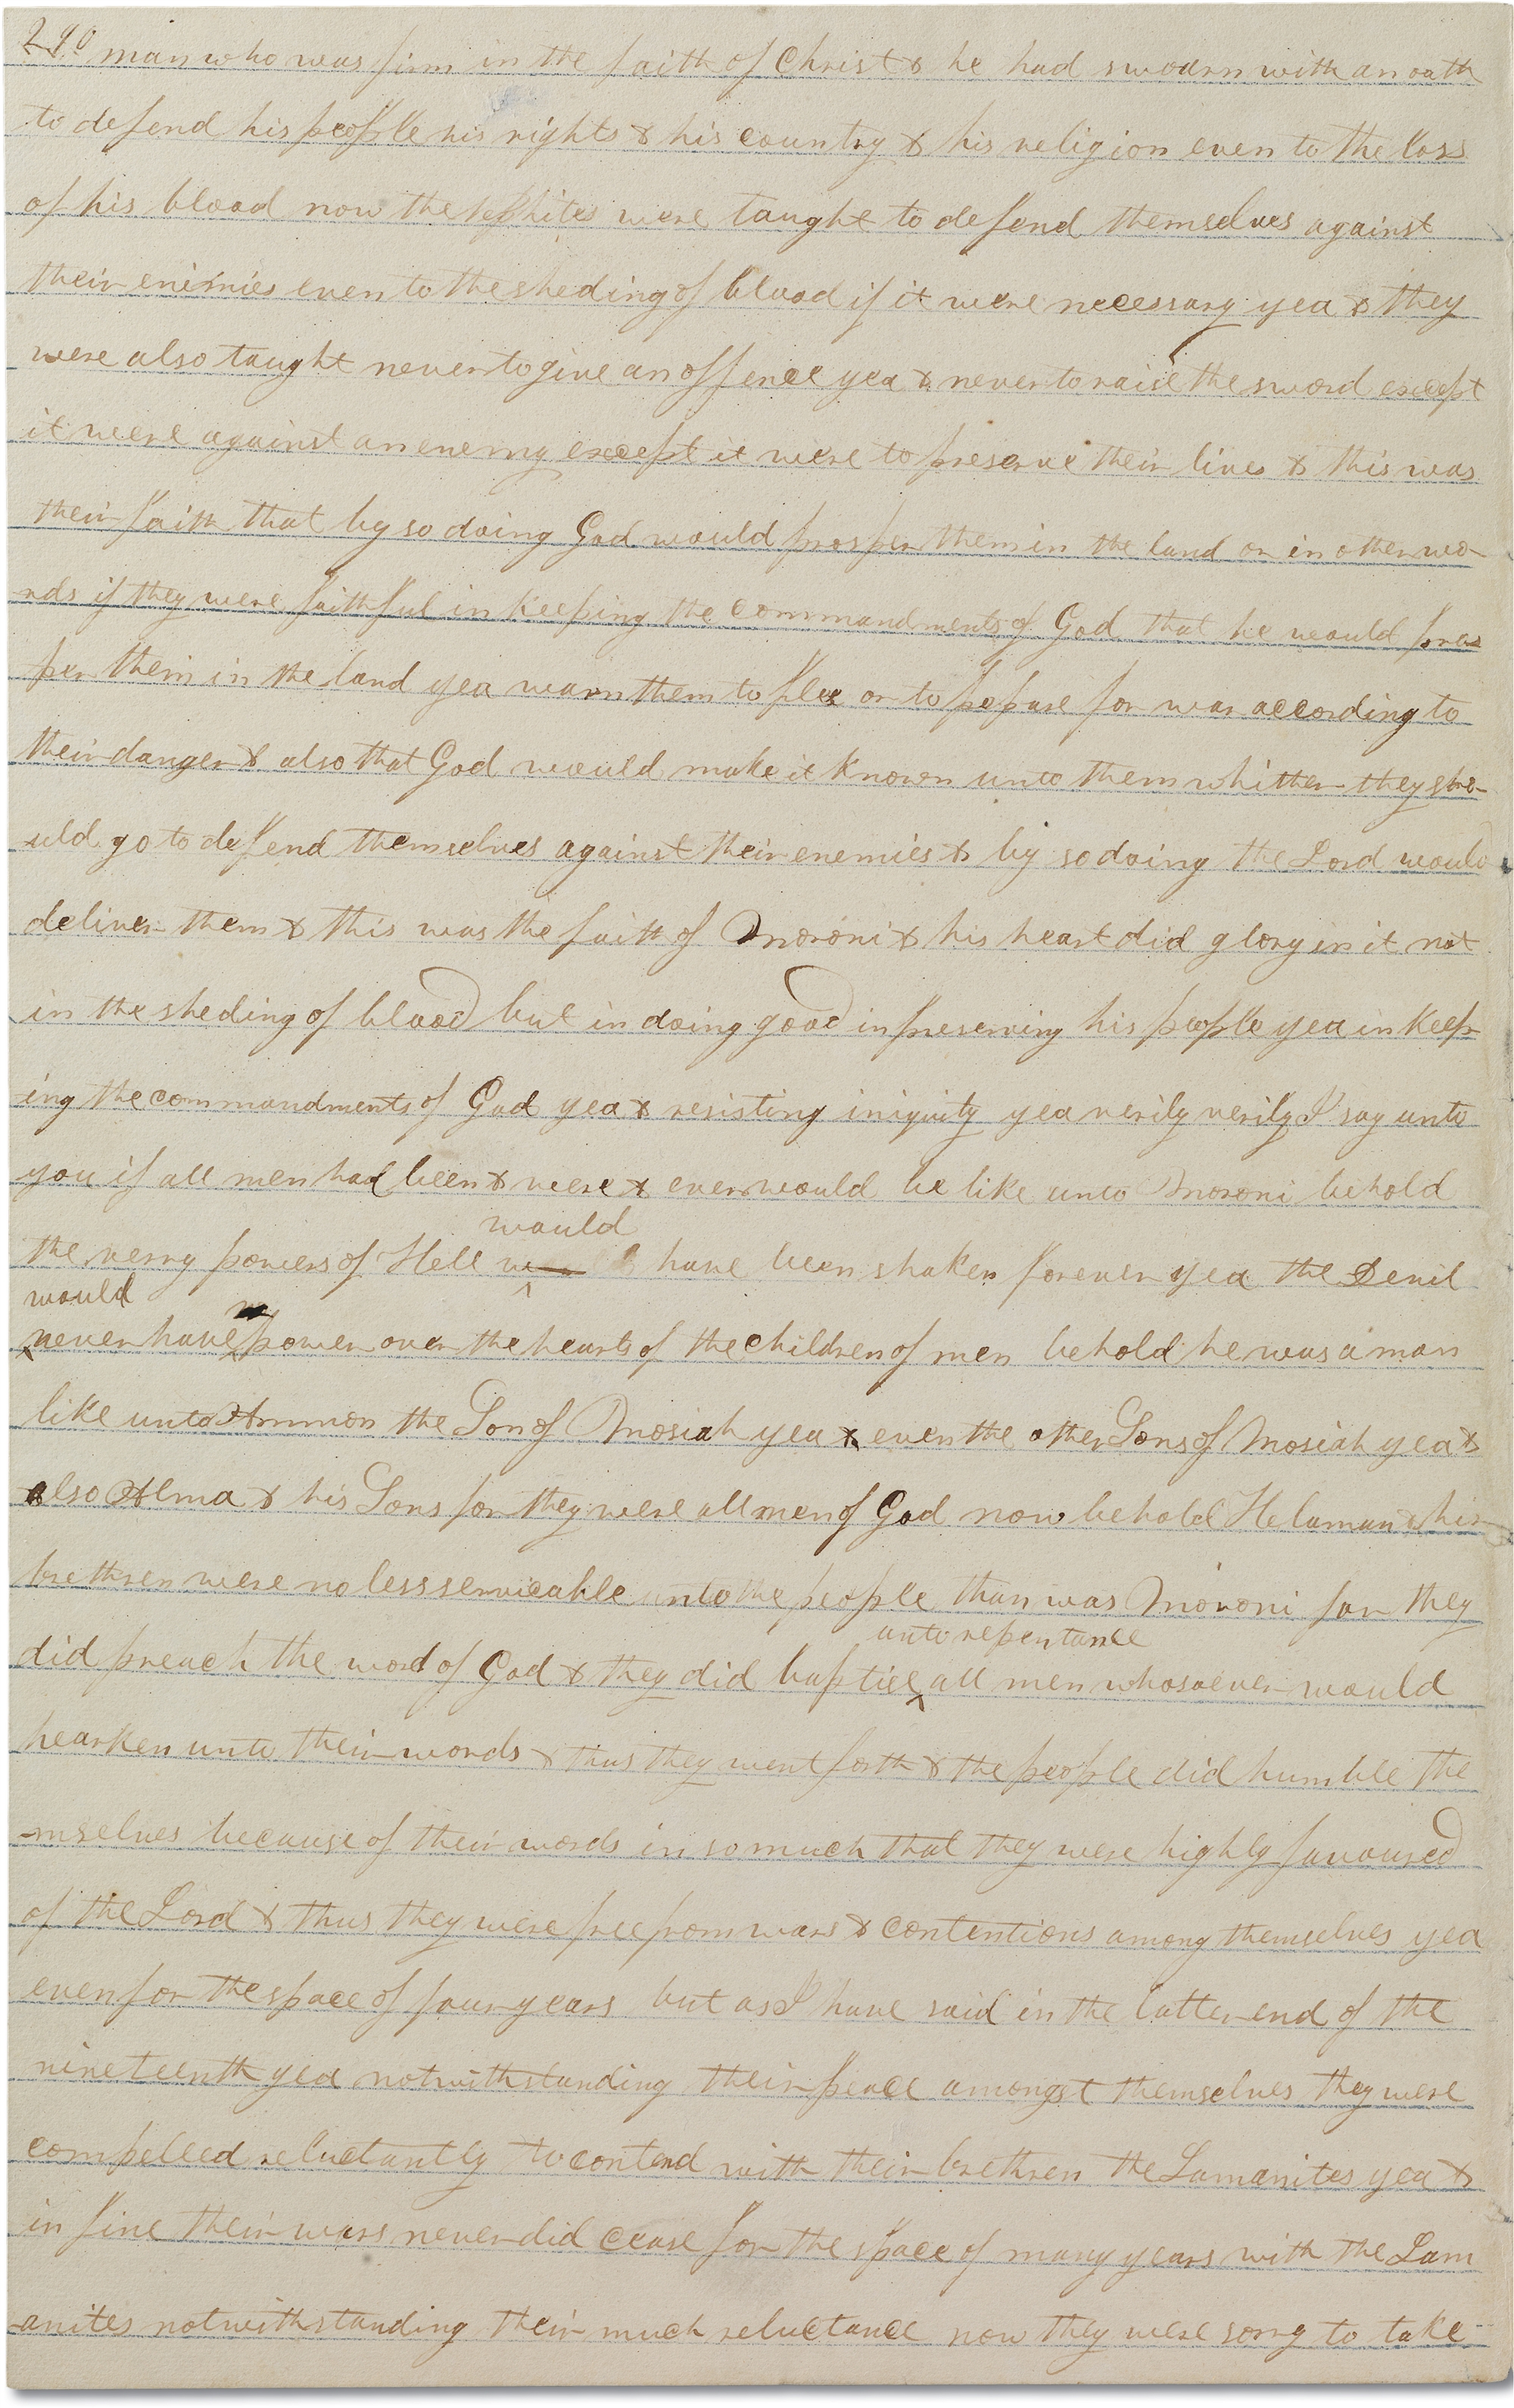 290 man who was firm in the faith of Christ & he had swoarn with an oath
to defend his people his rights & his country & his religion even to the loss
of his blood now the Nephites were taught to defend themselves against
their enimies even to the sheding of blood if it were necessary yea & they
were also taught never to give an offence yea & never to raise the sword except
it were against an enemy except it were to preserve their lives & this was
their faith that by so doing God would prosper them in the land or in other wo-
rds if they were faithful in keeping the commandments of God that he would pros
per them in the land yea warn them to flee or to prepare for war according to
their danger & also that God would make it known unto them whither they sho-
uld go to defend themselves against their enemies & by so doing the Lord would
deliver them & this was the faith of Moroni & his heart did glory in it not
in the sheding of blood but in doing good in preserving his people yea in keep
ing the commandments of God yea & resisting iniquity yea verily verily I say unto
you if all men had been & were & ever would be like unto Moroni behold
would
the verry powers of Hell have been shaken forever yea the Devil
would no
never have power over the hearts of the children of men behold he was a man
like unto Ammon the Son of Mosiah yea & even the other Sons of Mosiah yea &
also Alma & his Sons for they were all men of God now behold Helaman & his
brethren were no less servicable unto the people than was Moroni for they
unto repentance
did preach the word of God & they did baptise all men whosoever would
hearken unto their words & thus they went forth & the people did humble the
-mselves because of their words in so much that they were highly favoured
of the Lord & thus they were free from wars & contentions among themselves yea
even for the space of four years but as I have said in the latter end of the
nineteenth yea notwithstanding their peace amongst themselves they were
compelled reluctantly to contend with their brethren the Lamanites yea &
in fine their wars never did cease for the space of many years with the Lam
anites notwithstanding their much reluctance now they were sorry to take